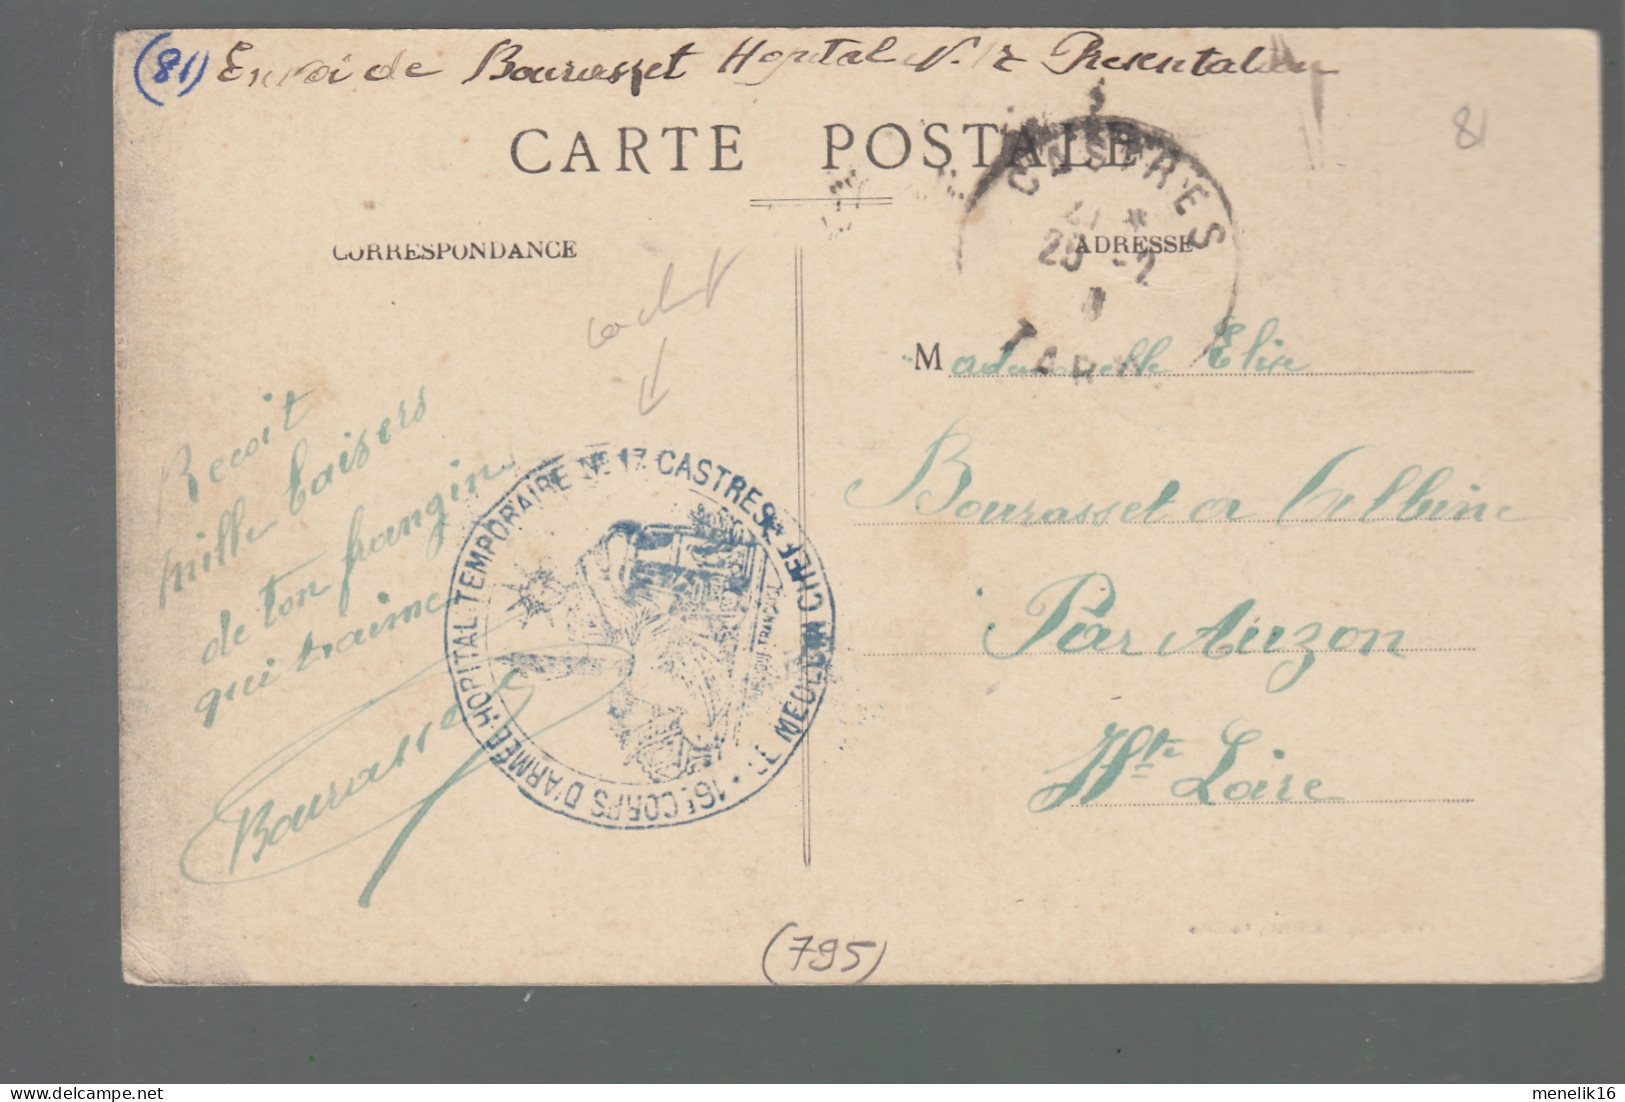 (81) Envoi de Bourasset Hopital N. 17 Presentation
CARTE POSTALE
81
CORRESPONDANCE
ADRESSE
CASTRES
25 -2
TARN
cachet
Mademoiselle Elise
Bourasset a Albine
Par Auzon
Hte Loire
Recoit
mille baisers
de ton frangin
qui t'aime
Bourasset
16E CORPS D'ARMÉE-HOPITAL TEMPORAIRE No 17 CASTRES
LE MEDECIN CHEF
(795)
menelik16